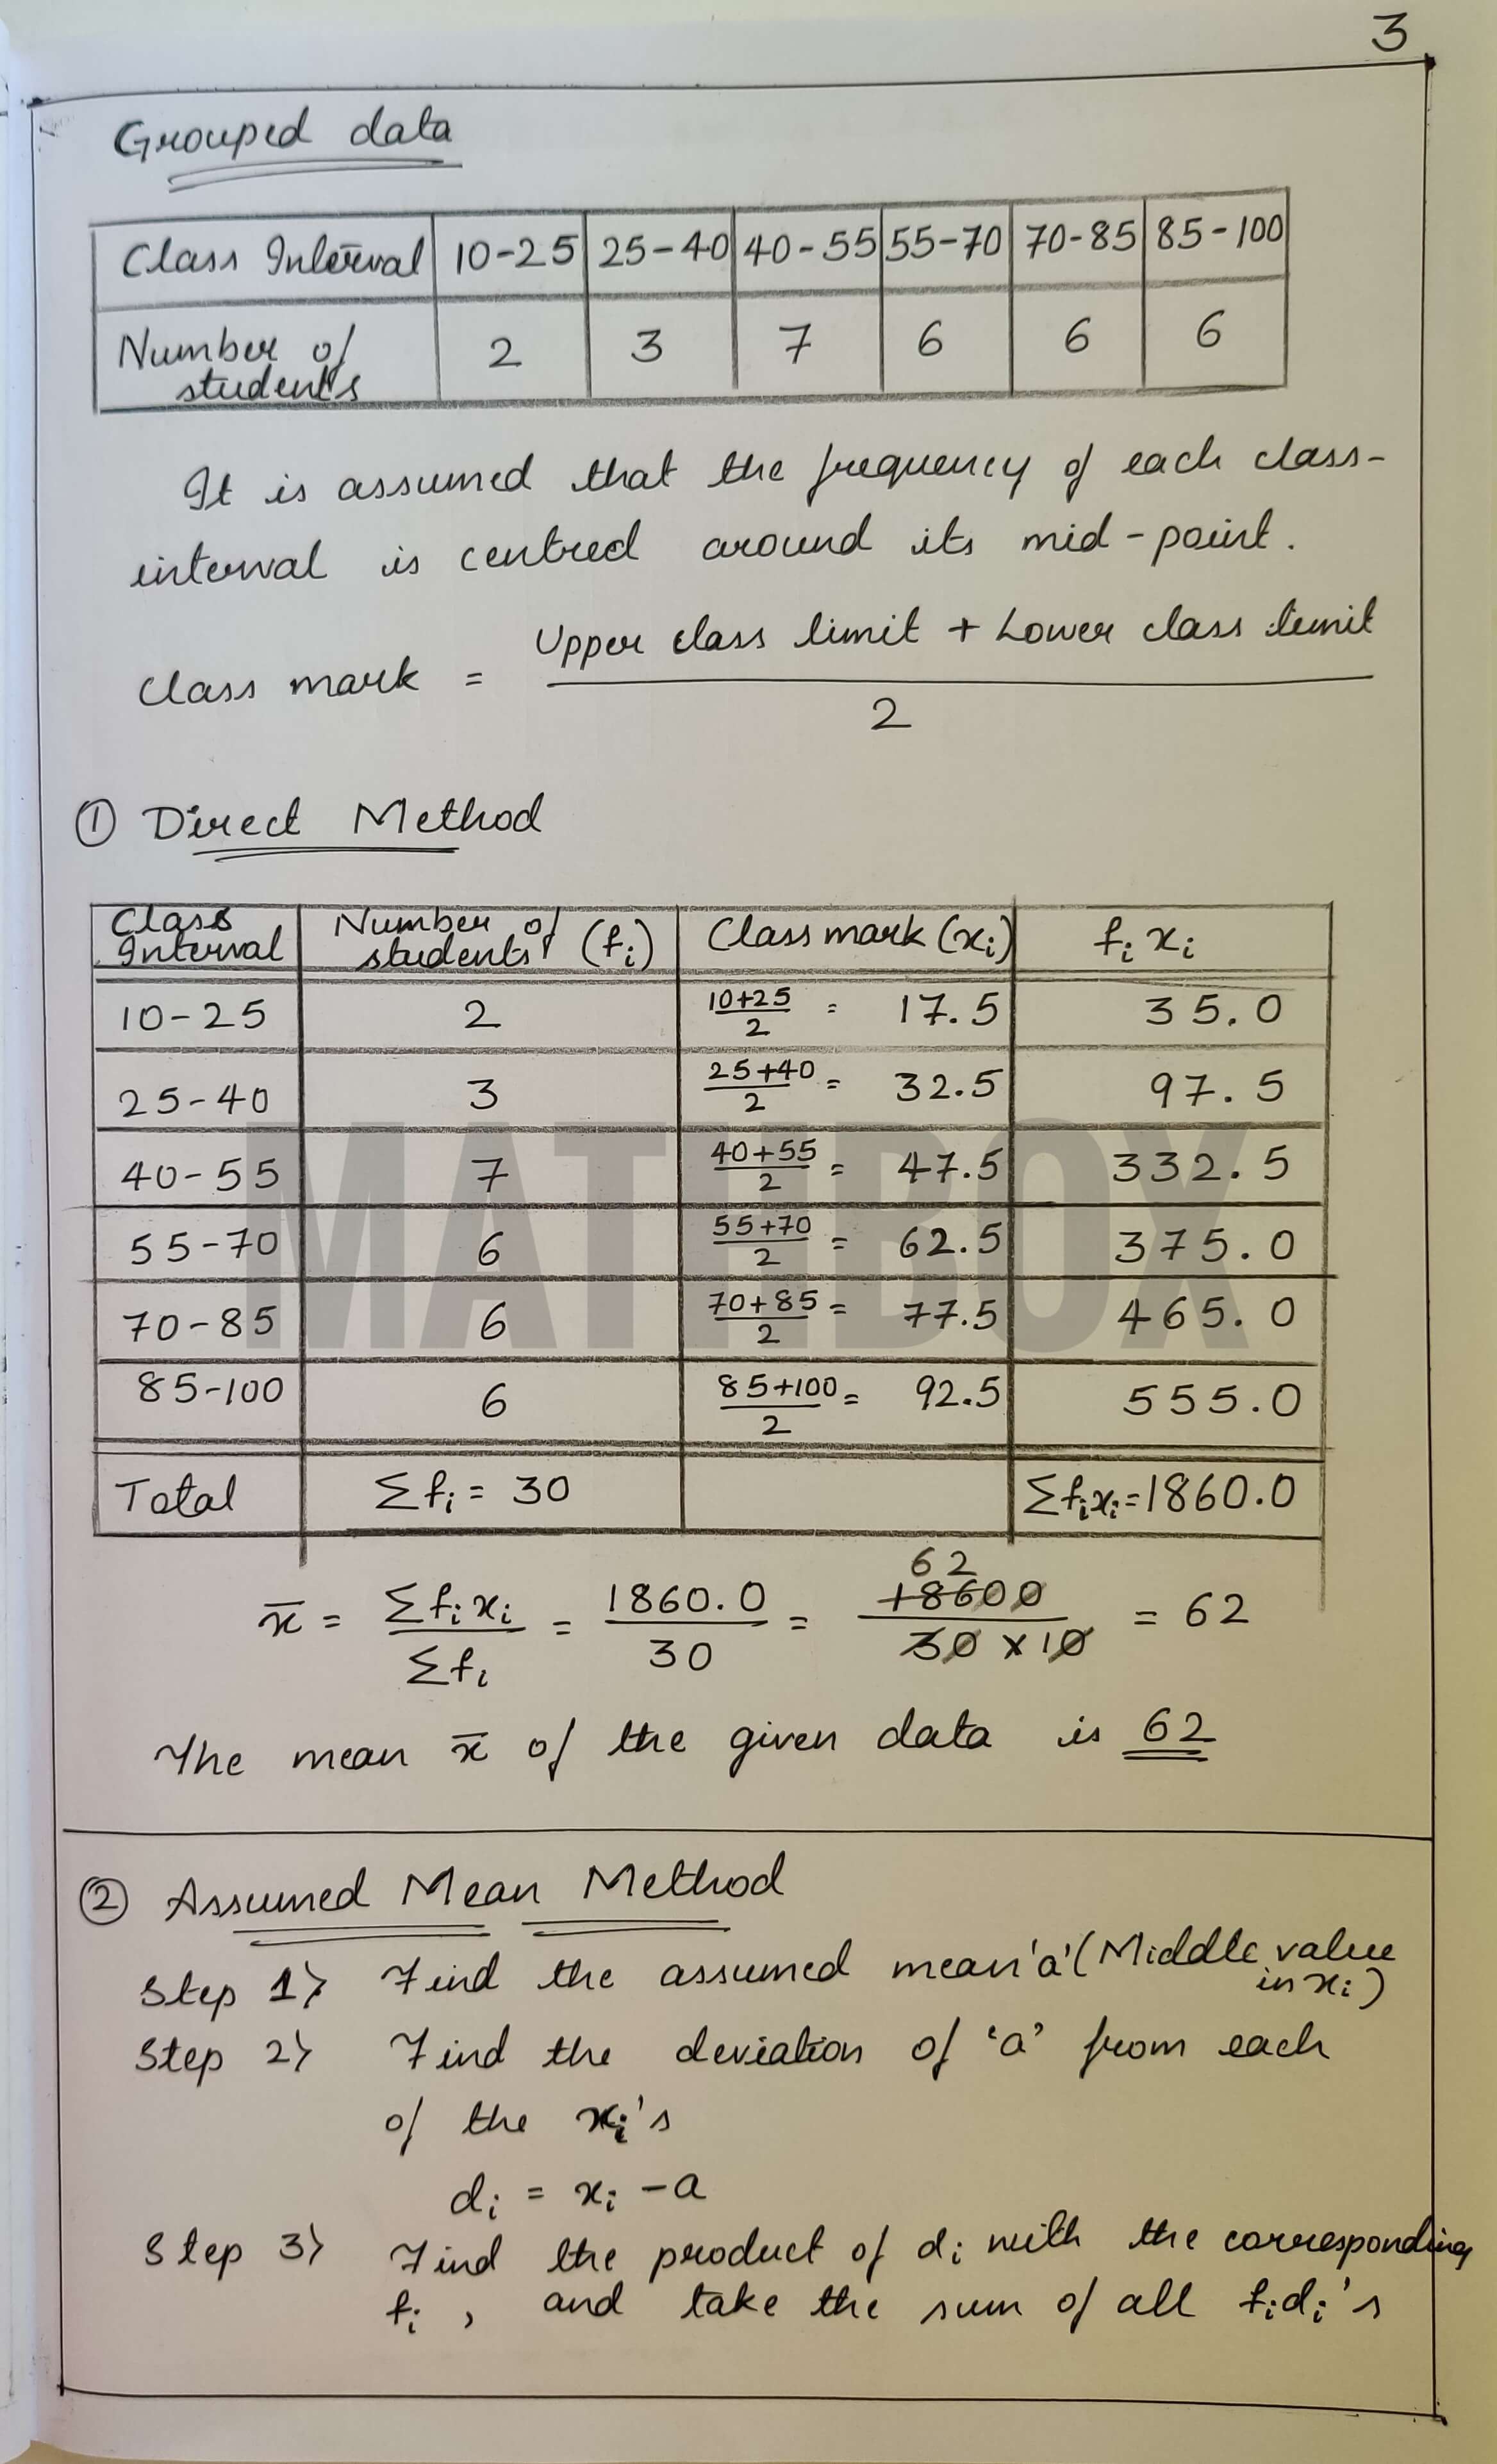 3
Grouped data
Class Interval 10-25 25-40 40-55 55-70 70-85 85-100
Number of students 2 3 7 6 6 6
It is assumed that the frequency of each class-
interval is centred around its mid-point.
Class mark = Upper class limit + Lower class limit / 2
① Direct Method
Class Interval Number of students (fi) Class mark (xi) fi xi
10-25 2 10+25/2 = 17.5 35.0
25-40 3 25+40/2 = 32.5 97.5
40-55 7 40+55/2 = 47.5 332.5
55-70 6 55+70/2 = 62.5 375.0
70-85 6 70+85/2 = 77.5 465.0
85-100 6 85+100/2 = 92.5 555.0
MATHBOX
Total Σfi = 30 Σfixi = 1860.0
x̄ = Σfixi / Σfi = 1860.0 / 30 = 62 18600 / 30 x 10 = 62
The mean x̄ of the given data is 62
② Assumed Mean Method
Step 1> Find the assumed mean 'a' (Middle value in xi)
Step 2> Find the deviation of 'a' from each
of the xi's
di = xi - a
Step 3> Find the product of di with the corresponding
fi , and take the sum of all fidi's